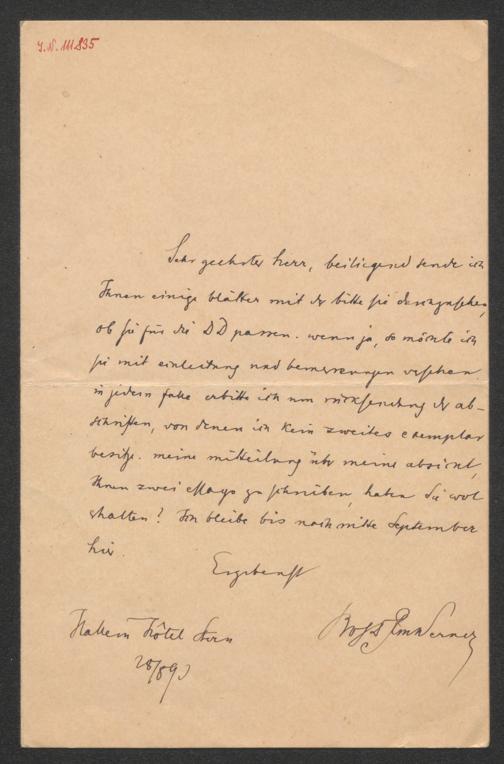 J.N. 111835
Sehr geehrter herr, beiliegend sende ich
Ihnen einige blätter mit der bitte sie durchzusehen,
ob sie für die DD passen. wenn ja, so möchte ich
sie mit einleitung und bemerkungen versehen
in jedem falle erbitte ich um rücksendung der ab-
schriften, von denen ich kein zweites exemplar
besitze. meine mitteilung über meine absicht,
Ihnen zwei essays zu schreiben, haben Sie wol
erhalten? Ich bleibe bis nach mitte September
hier.
Ergebenst
Werner
Hall in Hôtel Stern
28/8 93